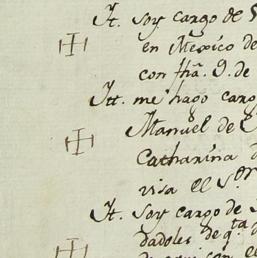 It. soy cargo de
en Mexico de
con fha. 9. de
Itt. me hago carg
Manuel de
Catharina
visa el Sor
It. soy cargo de
dadoles de qta